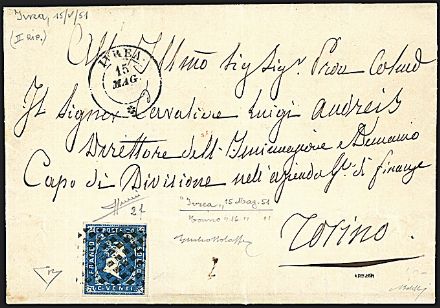 Ivrea, 15/5/51
(II RIP.)
IVREA
15
MAG
All Illmo Sig Sigr Pron Colmo
Il Signor Cavaliere Luigi Andreis
Direttore dell'Insinuazione e Demanio
Capo di Divisione nell'azienda Gle di finanze
Torino
"Ivrea" 15 Mag. 51
Torino "16" "
FRANCO
C. VENTI